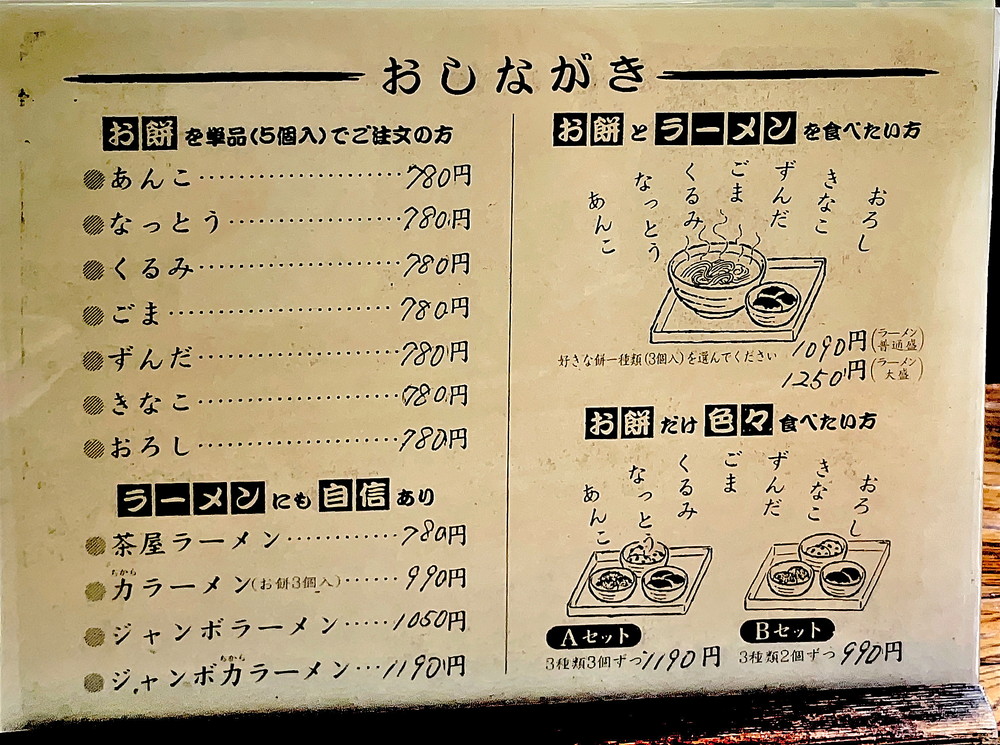 おしながき
お餅を単品(5個入)でご注文の方
あんこ……………………780円
なっとう…………………780円
くるみ……………………780円
ごま………………………780円
ずんだ……………………780円
きなこ……………………780円
おろし……………………780円
ラーメンにも自信あり
茶屋ラーメン……………780円
力ラーメン(お餅3個入)……990円
ちから
ジャンボラーメン……1050円
ジャンボ力ラーメン…1190円
ちから
お餅とラーメンを食べたい方
おろし
きなこ
ずんだ
ごま
くるみ
なっとう
あんこ
好きな餅一種類(3個入)を選んでください
1090円(ラーメン普通盛)
1250円(ラーメン大盛)
お餅だけ色々食べたい方
おろし
きなこ
ずんだ
ごま
くるみ
なっとう
あんこ
Aセット
3種類3個ずつ1190円
Bセット
3種類2個ずつ990円